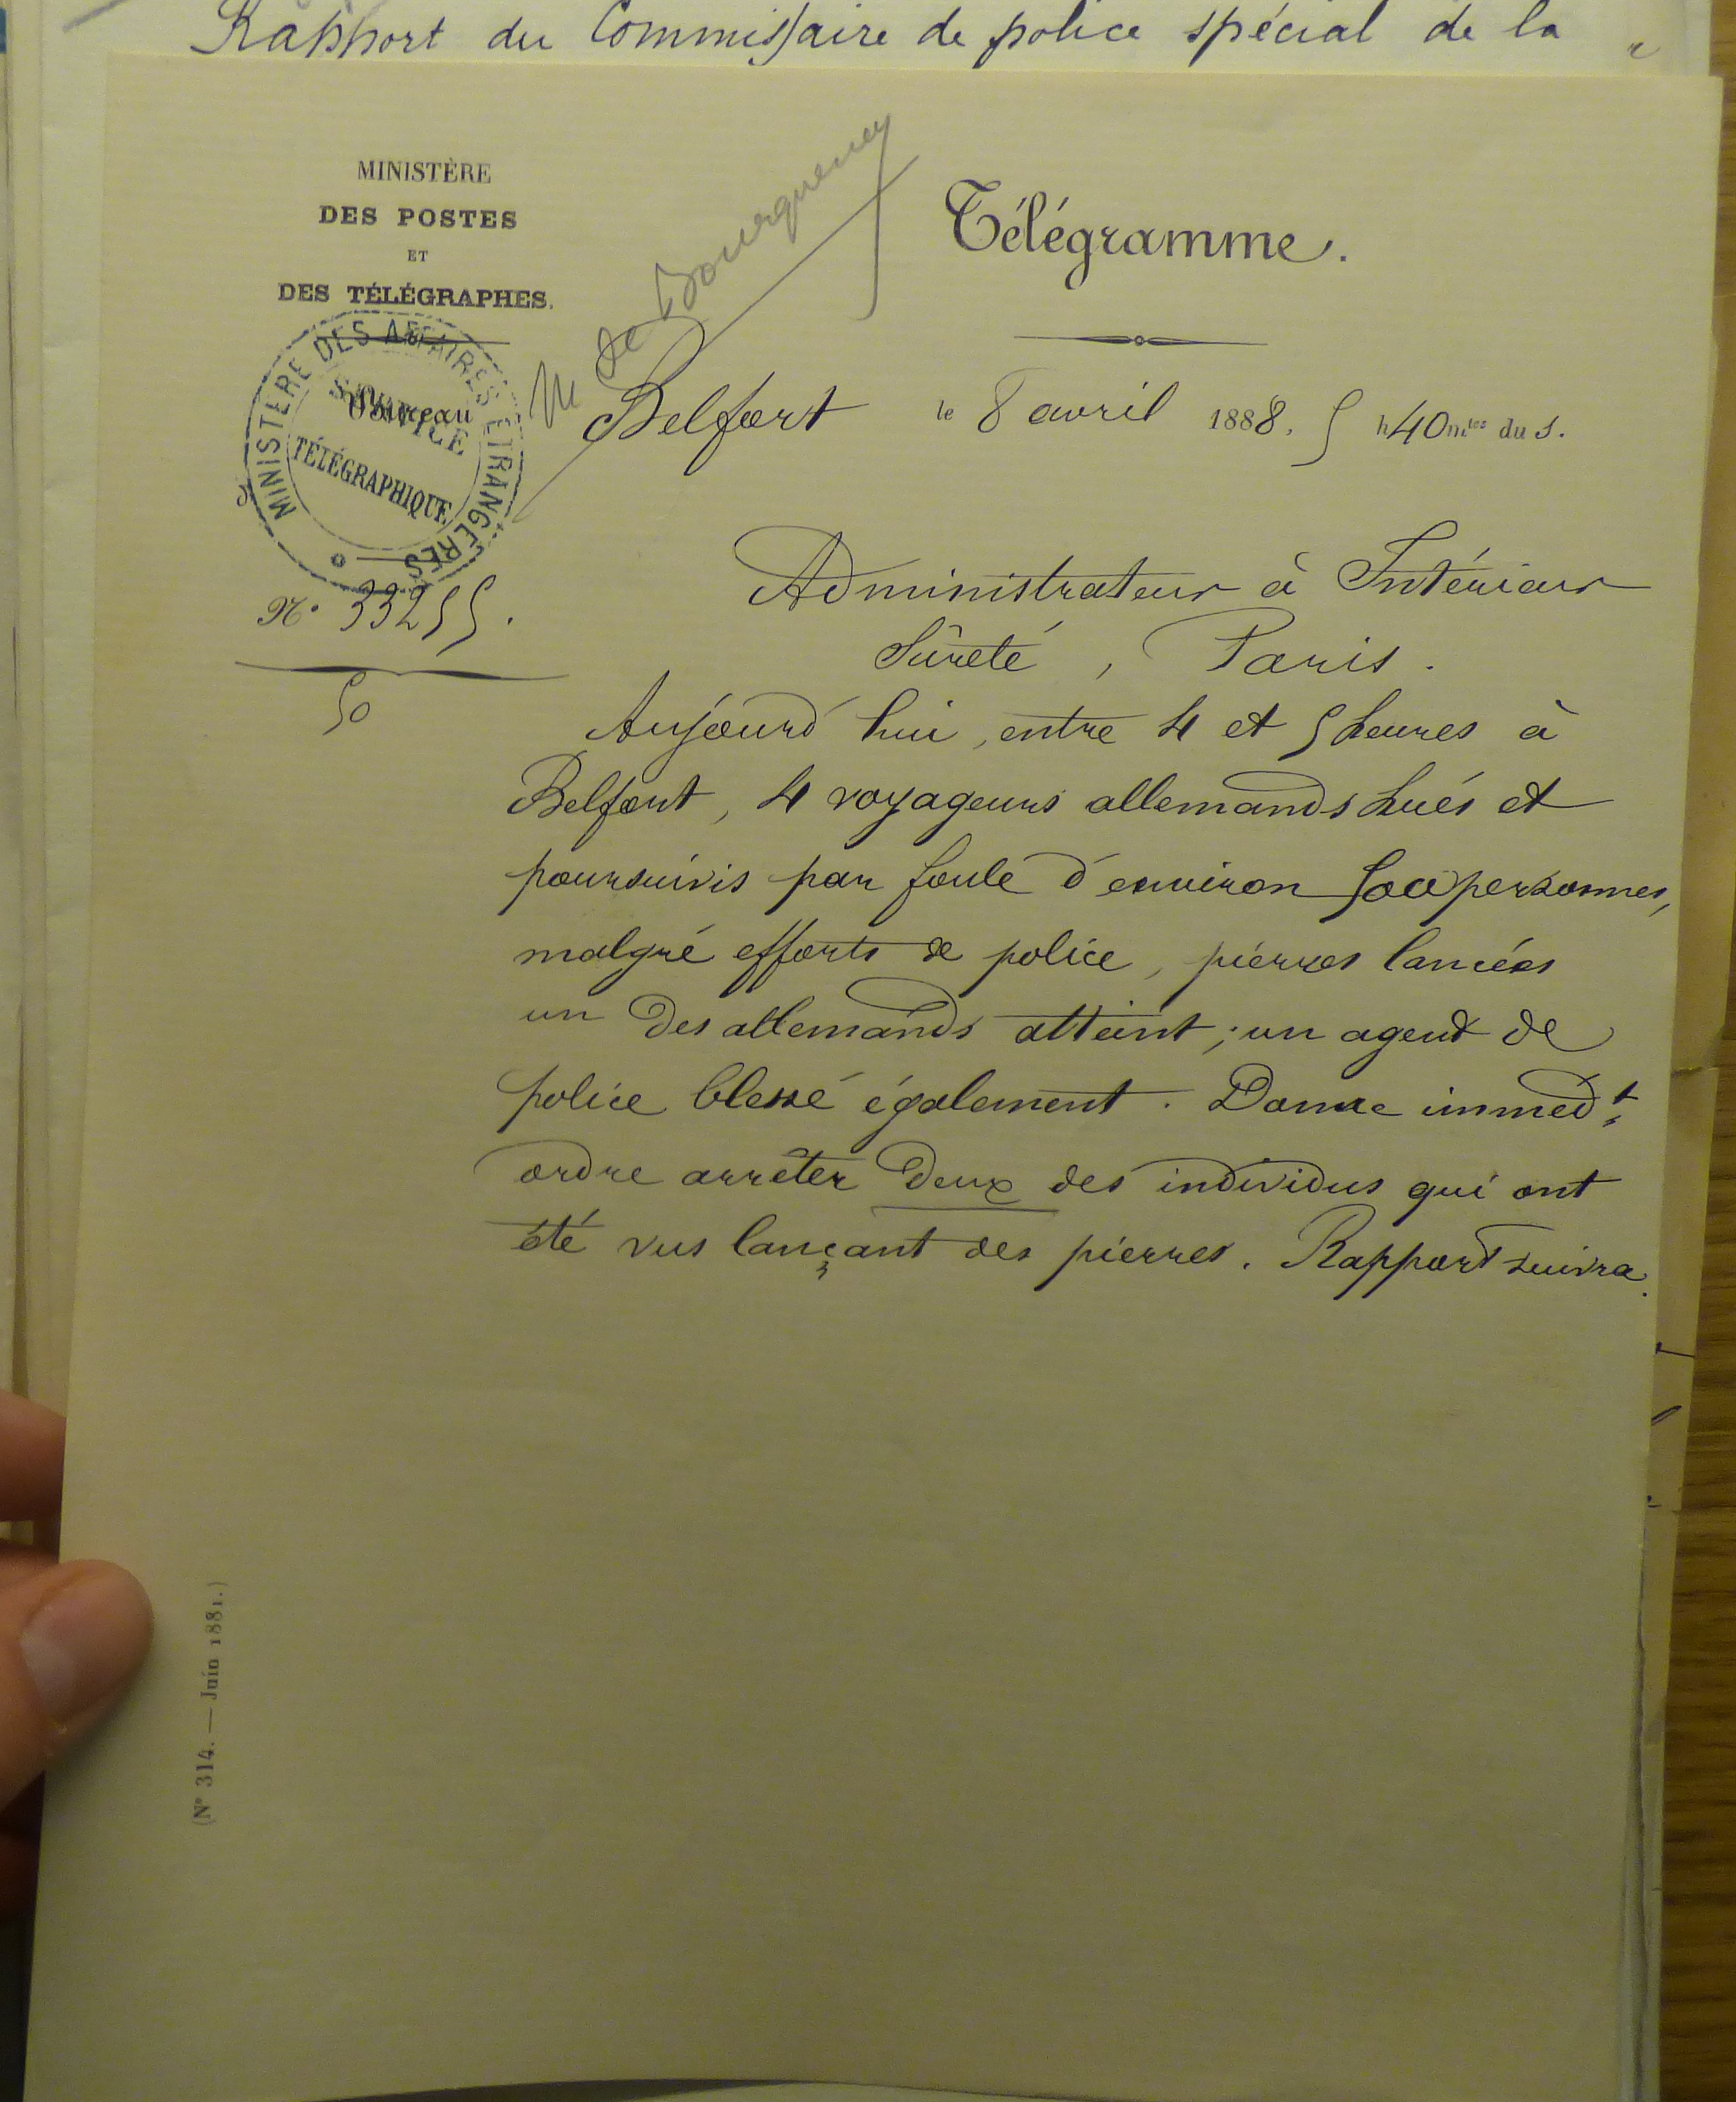 Rapport du Commissaire de police spécial de la
MINISTÈRE
DES POSTES
ET
DES TÉLÉGRAPHES.
MINISTERE DES AFFAIRES ETRANGÈRES
SERVICE
Bureau
TÉLÉGRAPHIQUE
M de Bourqueney
Télégramme.
Belfort le 8 avril 1888. 5 h 40 mtes du s.
N° 33255.
50
Administrateur à Intérieur
Sûreté, Paris.
Aujourd'hui, entre 4 et 5 heures à
Belfort, 4 voyageurs allemands hués et
poursuivis par foule d'environ 500 personnes,
malgré efforts de police, pierres lancées
un des allemands atteint; un agent de
police blessé également. Donne immédt
ordre arrêter deux des individus qui ont
été vus lançant des pierres. Rapport suivra.
(N° 314. — Juin 1881.)